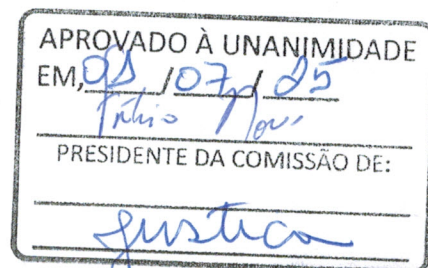 APROVADO À UNANIMIDADE
EM, 01 / 07 / 25
PRESIDENTE DA COMISSÃO DE:
Justiça